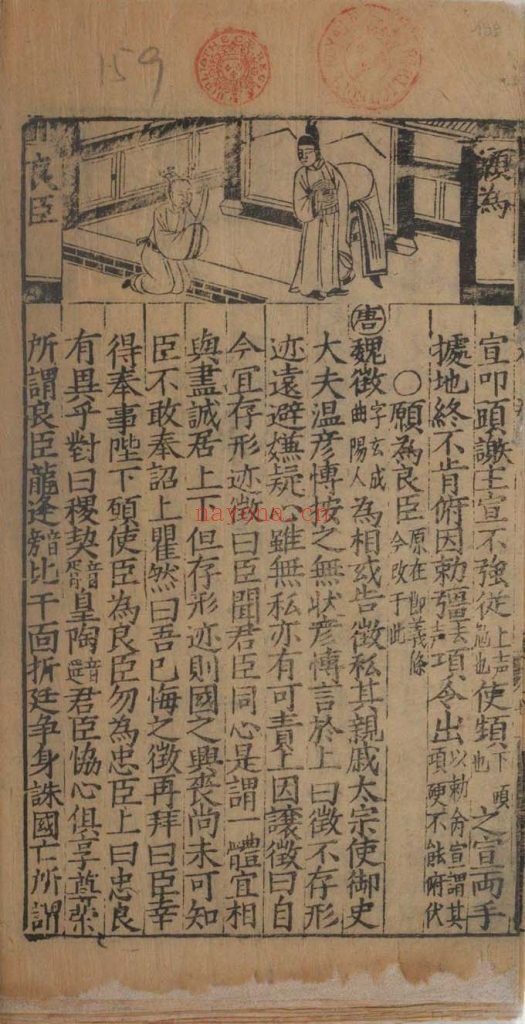 159
願為
良臣
宣叩頭謝主宣不強從上声勉也使頓下頭也之宣兩手
據地終不肯俯因勅彊去声項令出以勅為宣謂其項硬不能俯伏
○願為良臣原在節義條今改于此
唐魏徵字玄成曲陽人為相或告徵私其親戚太宗使御史
大夫温彥愽按之無狀彥愽言於上曰徵不存形
迹遠避嫌疑心雖無私亦有可責上因讓徵曰自
今宜存形迹徵曰臣聞君臣同心是謂一體宜相
與盡誠若上下但存形迹則國之興喪尚未可知
臣不敢奉詔上瞿然曰吾已悔之徵再拜曰臣幸
得奉事陛下願使臣為良臣勿為忠臣上曰忠良
有異乎對曰稷契音屑皇陶音遥君臣恊心俱享尊榮
所謂良臣龍逄音旁比干面折廷争身誅國亡所謂
nayona.cn